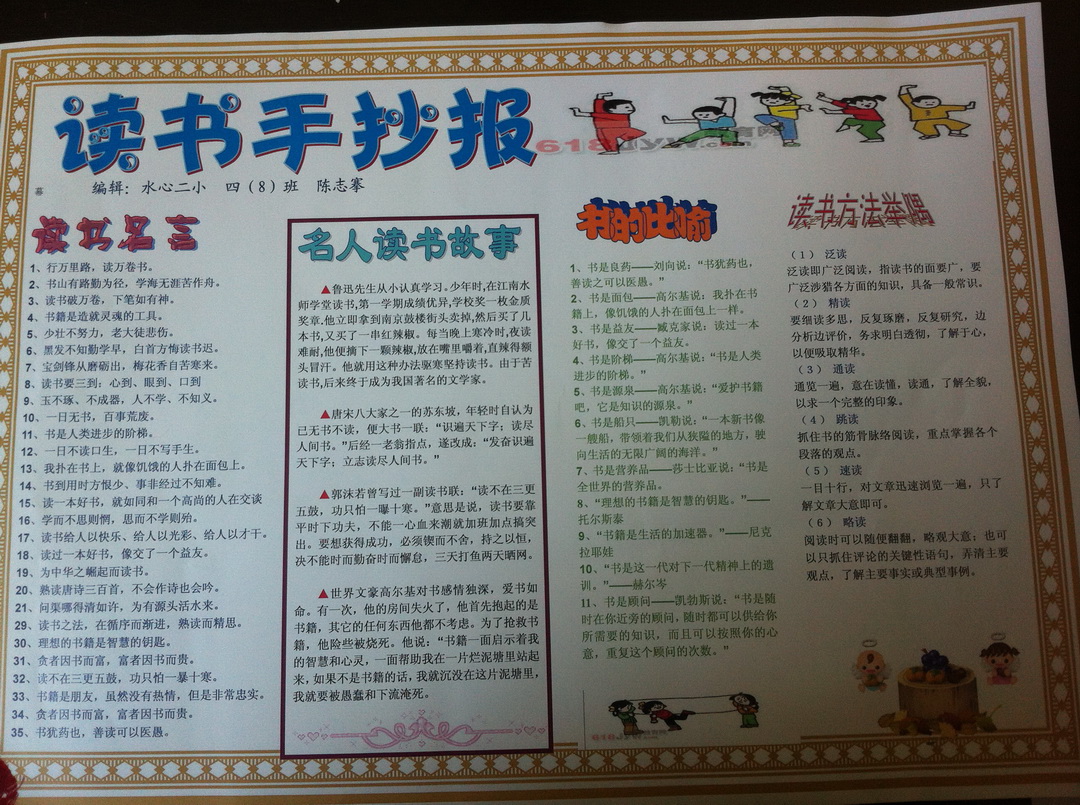 读书手抄报
编辑：水心二小 四（8）班 陈志搴
读书名言
1、行万里路，读万卷书。
2、书山有路勤为径，学海无涯苦作舟。
3、读书破万卷，下笔如有神。
4、书籍是造就灵魂的工具。
5、少壮不努力，老大徒悲伤。
6、黑发不知勤学早，白首方悔读书迟。
7、宝剑锋从磨砺出，梅花香自苦寒来。
8、读书要三到：心到、眼到、口到
9、玉不琢、不成器，人不学、不知义。
10、一日无书，百事荒废。
11、书是人类进步的阶梯。
12、一日不读口生，一日不写手生。
13、我扑在书上，就像饥饿的人扑在面包上。
14、书到用时方恨少、事非经过不知难。
15、读一本好书，就如同和一个高尚的人在交谈
16、学而不思则惘，思而不学则殆。
17、读书给人以快乐、给人以光彩、给人以才干。
18、读过一本好书，像交了一个益友。
19、为中华之崛起而读书。
20、熟读唐诗三百首，不会作诗也会吟。
21、问渠哪得清如许，为有源头活水来。
29、读书之法，在循序而渐进，熟读而精思。
30、理想的书籍是智慧的钥匙。
31、贪者因书而富，富者因书而贵。
32、读不在三更五鼓，功只怕一暴十寒。
33、书籍是朋友，虽然没有热情，但是非常忠实。
34、贪者因书而富，富者因书而贵。
35、书犹药也，善读可以医愚。
名人读书故事
▲鲁迅先生从小认真学习。少年时，在江南水
师学堂读书，第一学期成绩优异，学校奖一枚金质
奖章，他立即拿到南京鼓楼街头卖掉，然后买了几
本书，又买了一串红辣椒。每当晚上寒冷时，夜读
难耐，他便摘下一颗辣椒，放在嘴里嚼着，直辣得额
头冒汗。他就用这种办法驱寒坚持读书。由于苦
读书，后来终于成为我国著名的文学家。
▲唐宋八大家之一的苏东坡，年轻时自认为
已无书不读，便大书一联：“识遍天下字；读尽
人间书。”后经一老翁指点，遂改成：“发奋识遍
天下字；立志读尽人间书。”
▲郭沫若曾写过一副读书联：“读不在三更
五鼓，功只怕一曝十寒。”意思是说，读书要靠
平时下功夫，不能一心血来潮就加班加点搞突
出。要想获得成功，必须锲而不舍，持之以恒，
决不能时而勤奋时而懈怠，三天打鱼两天晒网。
▲世界文豪高尔基对书感情独深，爱书如
命。有一次，他的房间失火了，他首先抱起的是
书籍，其它的任何东西他都不考虑。为了抢救书
籍，他险些被烧死。他说：“书籍一面启示着我
的智慧和心灵，一面帮助我在一片烂泥塘里站起
来，如果不是书籍的话，我就沉没在这片泥塘里，
我就要被愚蠢和下流淹死。
书的比喻
1、书是良药——刘向说：“书犹药也，
善读之可以医愚。”
2、书是面包——高尔基说：我扑在书
籍上，像饥饿的人扑在面包上一样。
3、书是益友——臧克家说：读过一本
好书，像交了一个益友。
4、书是阶梯——高尔基说：“书是人类
进步的阶梯。”
5、书是源泉——高尔基说：“爱护书籍
吧，它是知识的源泉。”
6、书是船只——凯勒说：“一本新书像
一艘船，带领着我们从狭隘的地方，驶
向生活的无限广阔的海洋。”
7、书是营养品——莎士比亚说：“书是
全世界的营养品。
8、“理想的书籍是智慧的钥匙。”——
托尔斯泰
9、“书籍是生活的加速器。”——尼克
拉耶娃
10、“书是这一代对下一代精神上的遗
训。”——赫尔岑
11、书是顾问——凯勃斯说：“书是随
时在你近旁的顾问，随时都可以供给你
所需要的知识，而且可以按照你的心
意，重复这个顾问的次数。”
读书方法举隅
（1） 泛读
泛读即广泛阅读，指读书的面要广，要
广泛涉猎各方面的知识，具备一般常识。
（2） 精读
要细读多思，反复琢磨，反复研究，边
分析边评价，务求明白透彻，了解于心，
以便吸取精华。
（3） 通读
通览一遍，意在读懂，读通，了解全貌，
以求一个完整的印象。
（4） 跳读
抓住书的筋骨脉络阅读，重点掌握各个
段落的观点。
（5） 速读
一目十行，对文章迅速浏览一遍，只了
解文章大意即可。
（6） 略读
阅读时可以随便翻翻，略观大意；也可
以只抓住评论的关键性语句，弄清主要
观点，了解主要事实或典型事例。